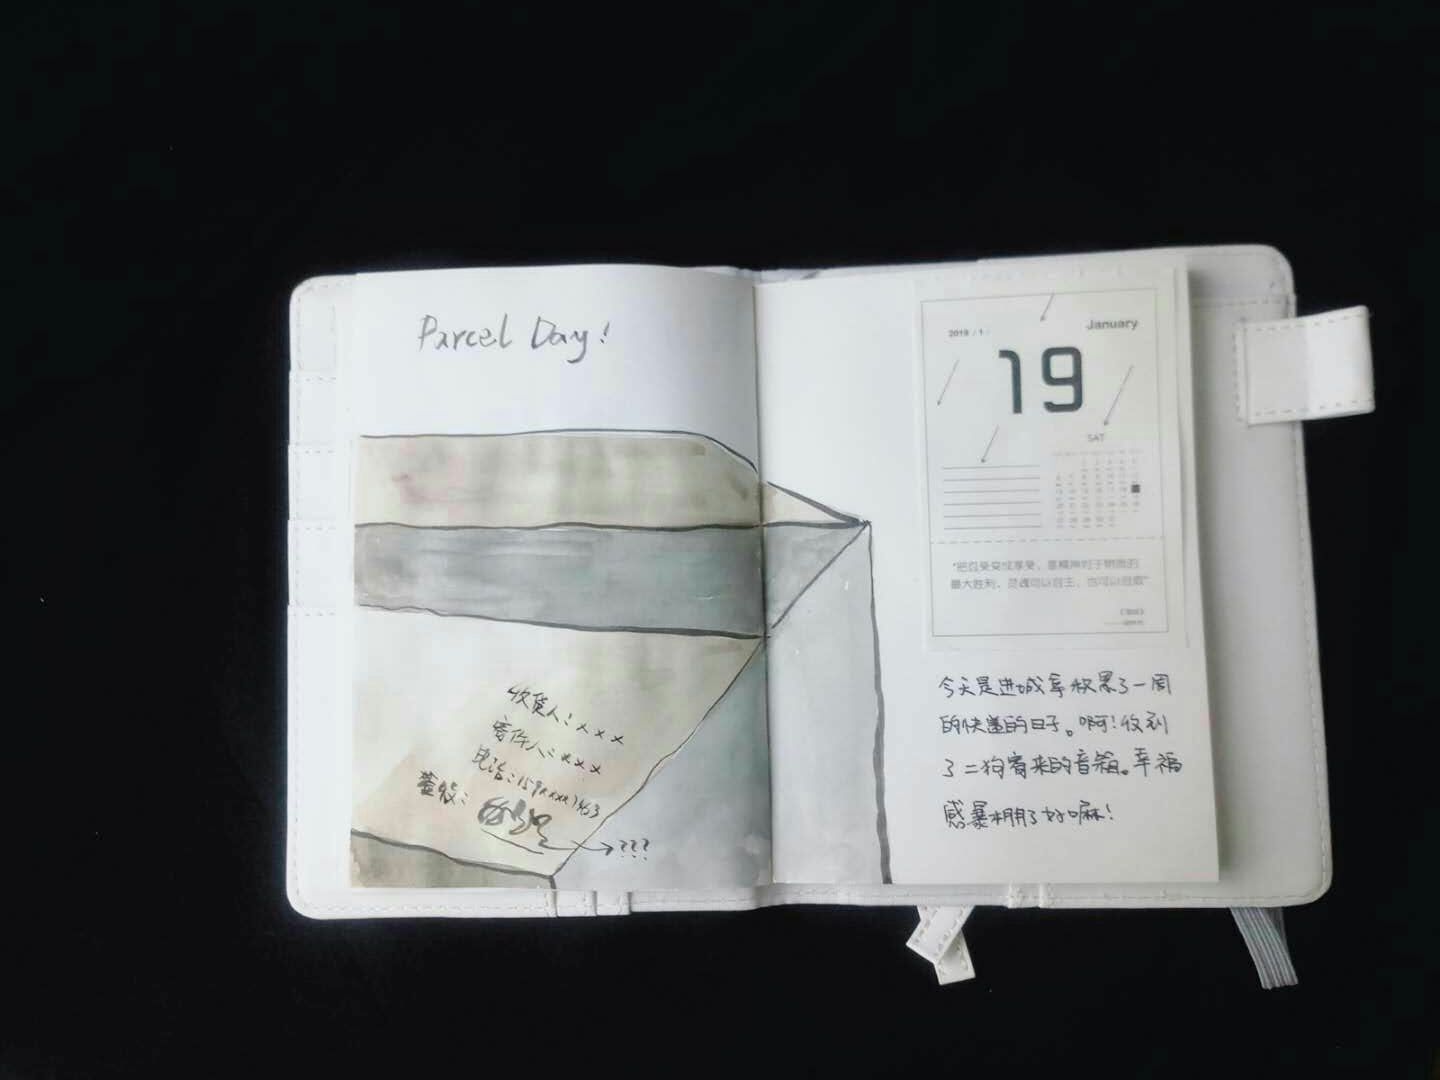 Parcel Day!
收货人：xxx
寄件人：xxx
电话：159xxxx7463
签收：
→???
2019 / 1 /
January
19
SAT
"把忍受变成享受，是精神对于物质的
最大胜利，灵魂可以自主，也可以自欺"
今天是进城拿积累了一周
的快递的日子。啊！收到
了二狗寄来的音箱。幸福
感暴棚了好嘛！